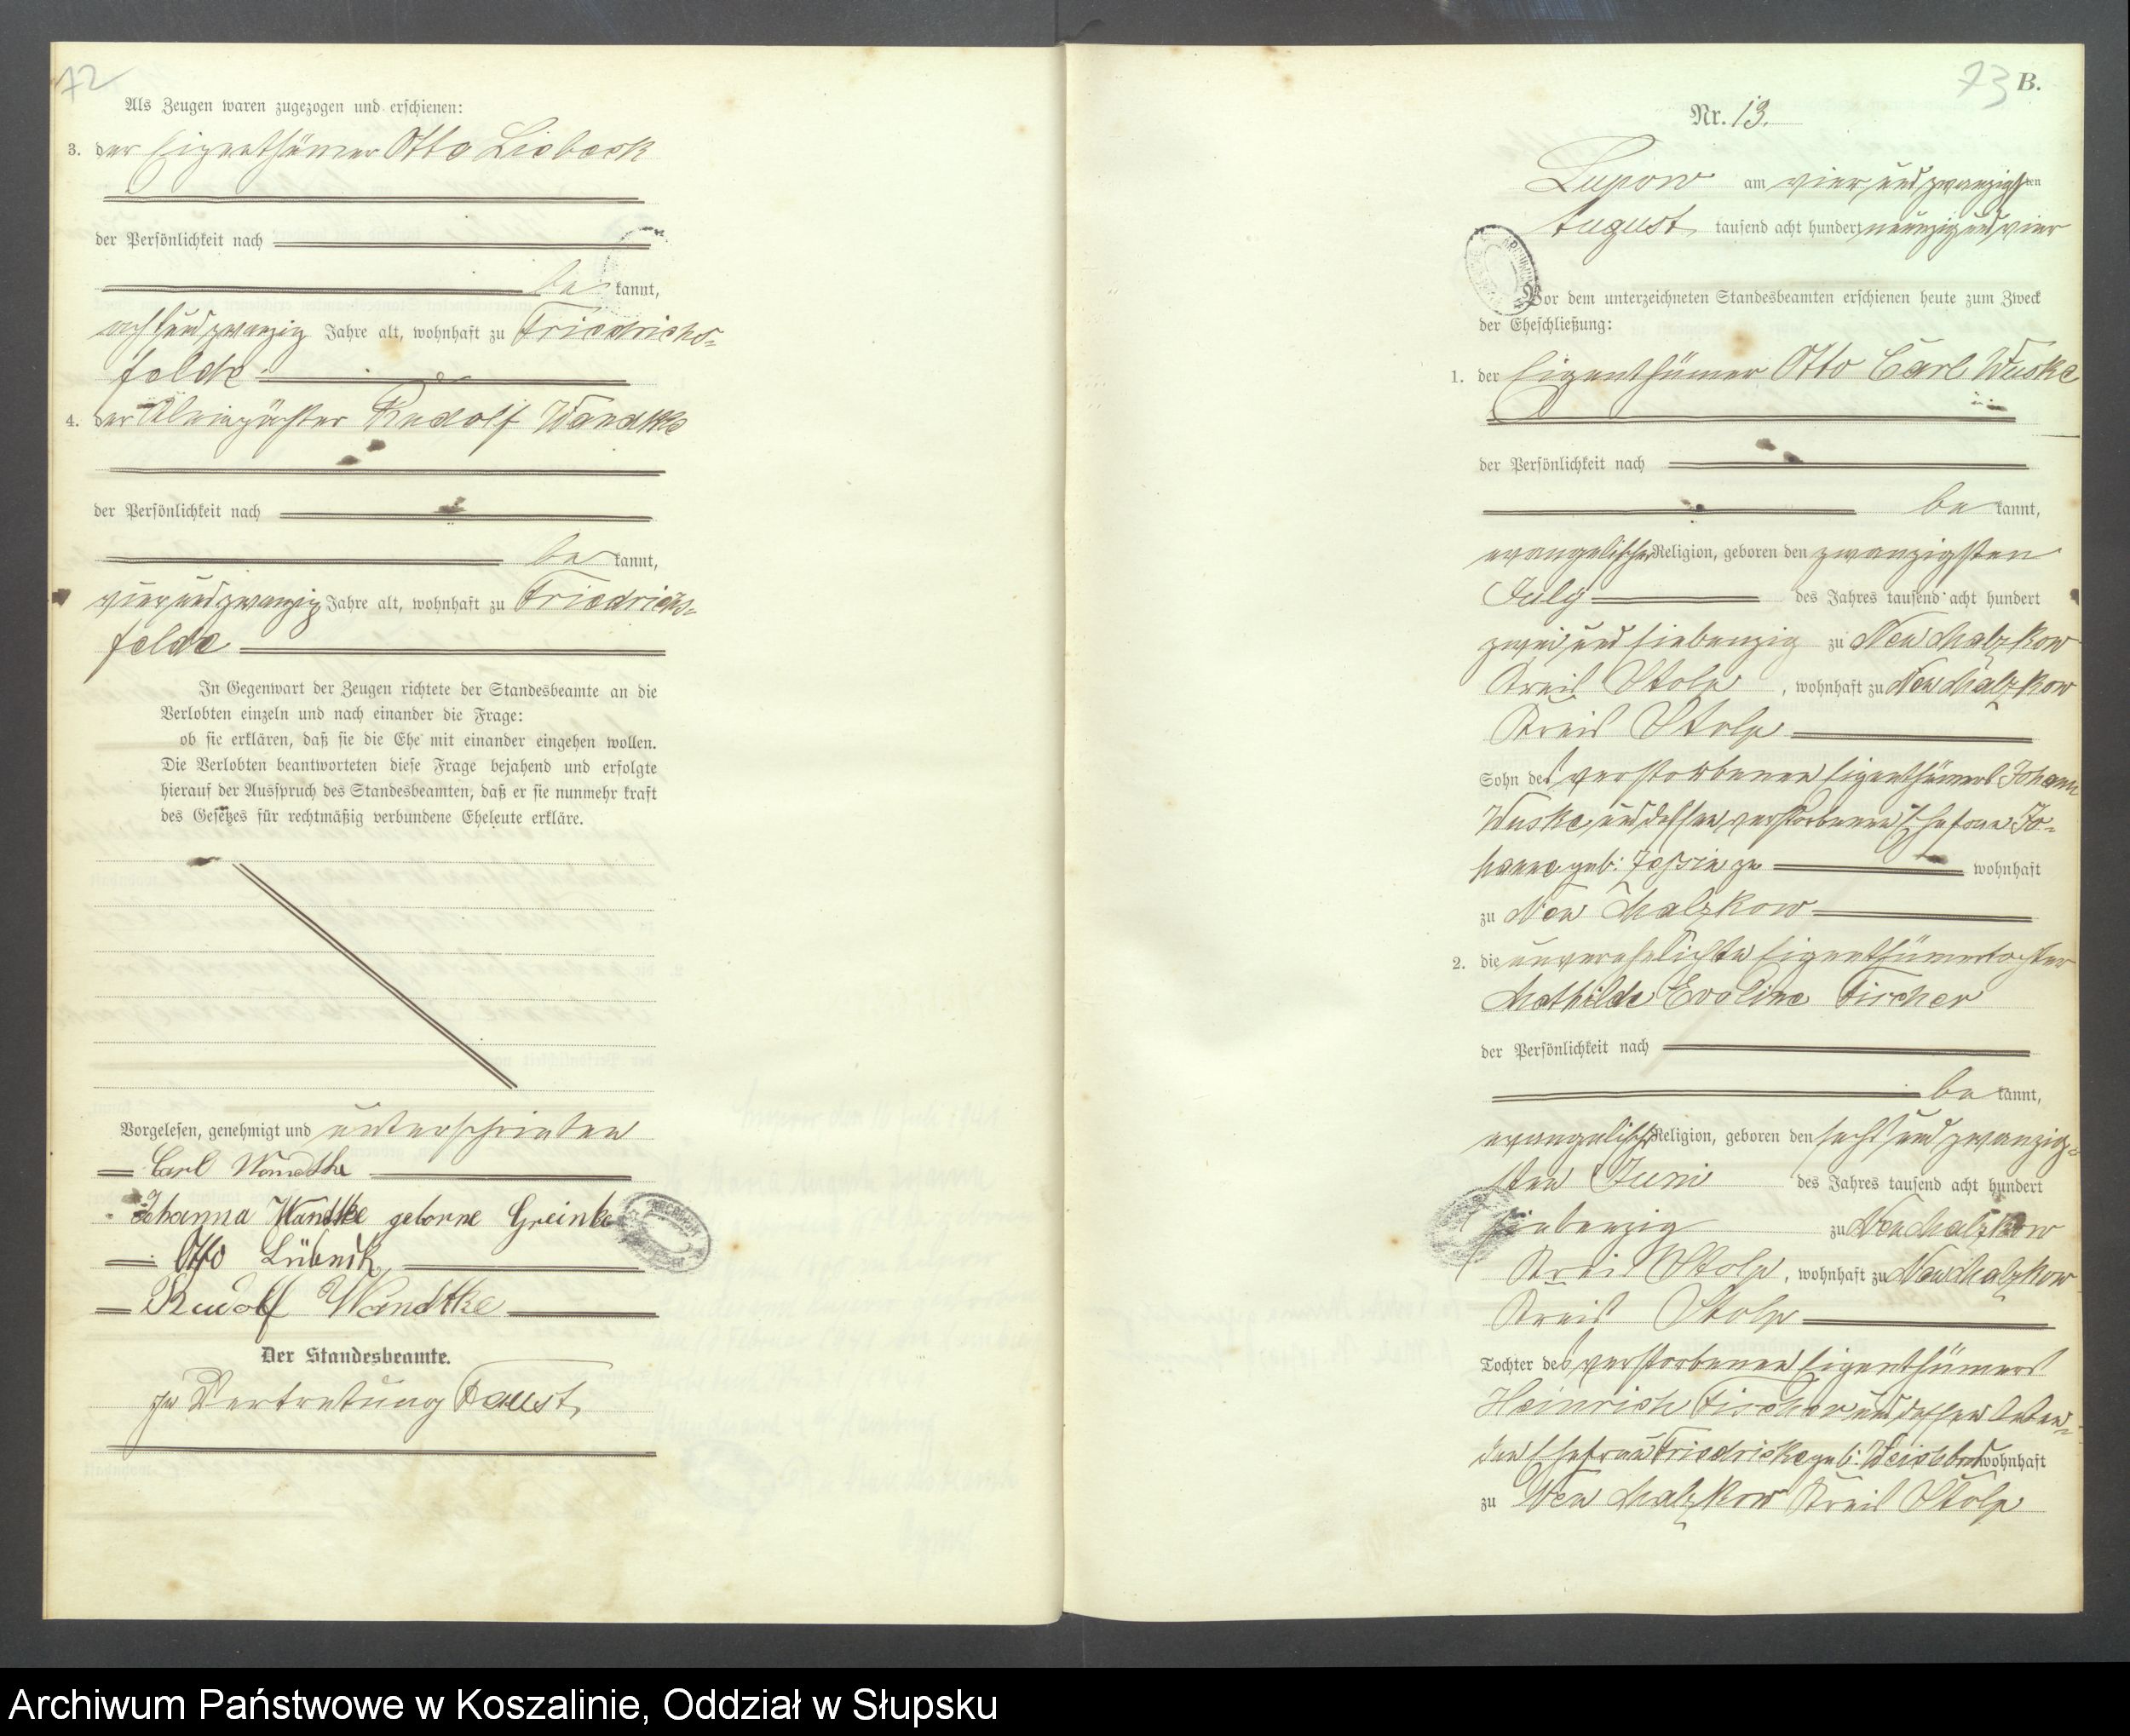 72
Als Zeugen waren zugezogen und erschienen:
3. der Eigenthümer Otto Liebeck
der Persönlichkeit nach
be kannt,
acht und zwanzig Jahre alt, wohnhaft zu Friedrichs-
felde
4. der Kleinpächter Rudolf Wandtke
der Persönlichkeit nach
be kannt,
vier und zwanzig Jahre alt, wohnhaft zu Friedrichs-
felde
In Gegenwart der Zeugen richtete der Standesbeamte an die
Verlobten einzeln und nach einander die Frage:
ob sie erklären, daß sie die Ehe mit einander eingehen wollen.
Die Verlobten beantworteten diese Frage bejahend und erfolgte
hierauf der Ausspruch des Standesbeamten, daß er sie nunmehr kraft
des Gesetzes für rechtmäßig verbundene Eheleute erkläre.
Vorgelesen, genehmigt und unterschrieben
Carl Wandtke
Johanna Wandtke geborne Greinke
Otto Lübeck
Rudolf Wandtke
Der Standesbeamte.
In Vertretung Faust
73 B.
Nr. 13.
Lupow am vier und zwanzigsten
August tausend acht hundert neunzig und vier
Vor dem unterzeichneten Standesbeamten erschienen heute zum Zweck
der Eheschließung:
1. der Eigenthümer Otto Carl Wuske
der Persönlichkeit nach
be kannt,
evangelischer Religion, geboren den zwanzigsten
July des Jahres tausend acht hundert
zwei und siebenzig zu Neu Malzkow
Kreis Stolp, wohnhaft zu Neu Malzkow
Kreis Stolp
Sohn des verstorbenen Eigenthümers Johann
Wuske und dessen verstorbenen Ehefrau Jo-
hanne geb: wohnhaft
zu Neu Malzkow
2. die unverehelichte Eigenthümertochter
Mathilde Eveline Fischer
der Persönlichkeit nach
be kannt,
evangelischer Religion, geboren den sechs und zwanzig-
sten Juni des Jahres tausend acht hundert
siebenzig zu Neu Malzkow
Kreis Stolp, wohnhaft zu Neu Malzkow
Kreis Stolp
Tochter des verstorbenen Eigenthümers
Heinrich Fischer und dessen leben-
den Ehefrau Friedricke geb: wohnhaft
zu Neu Malzkow Kreis Stolp
Archiwum Państwowe w Koszalinie, Oddział w Słupsku